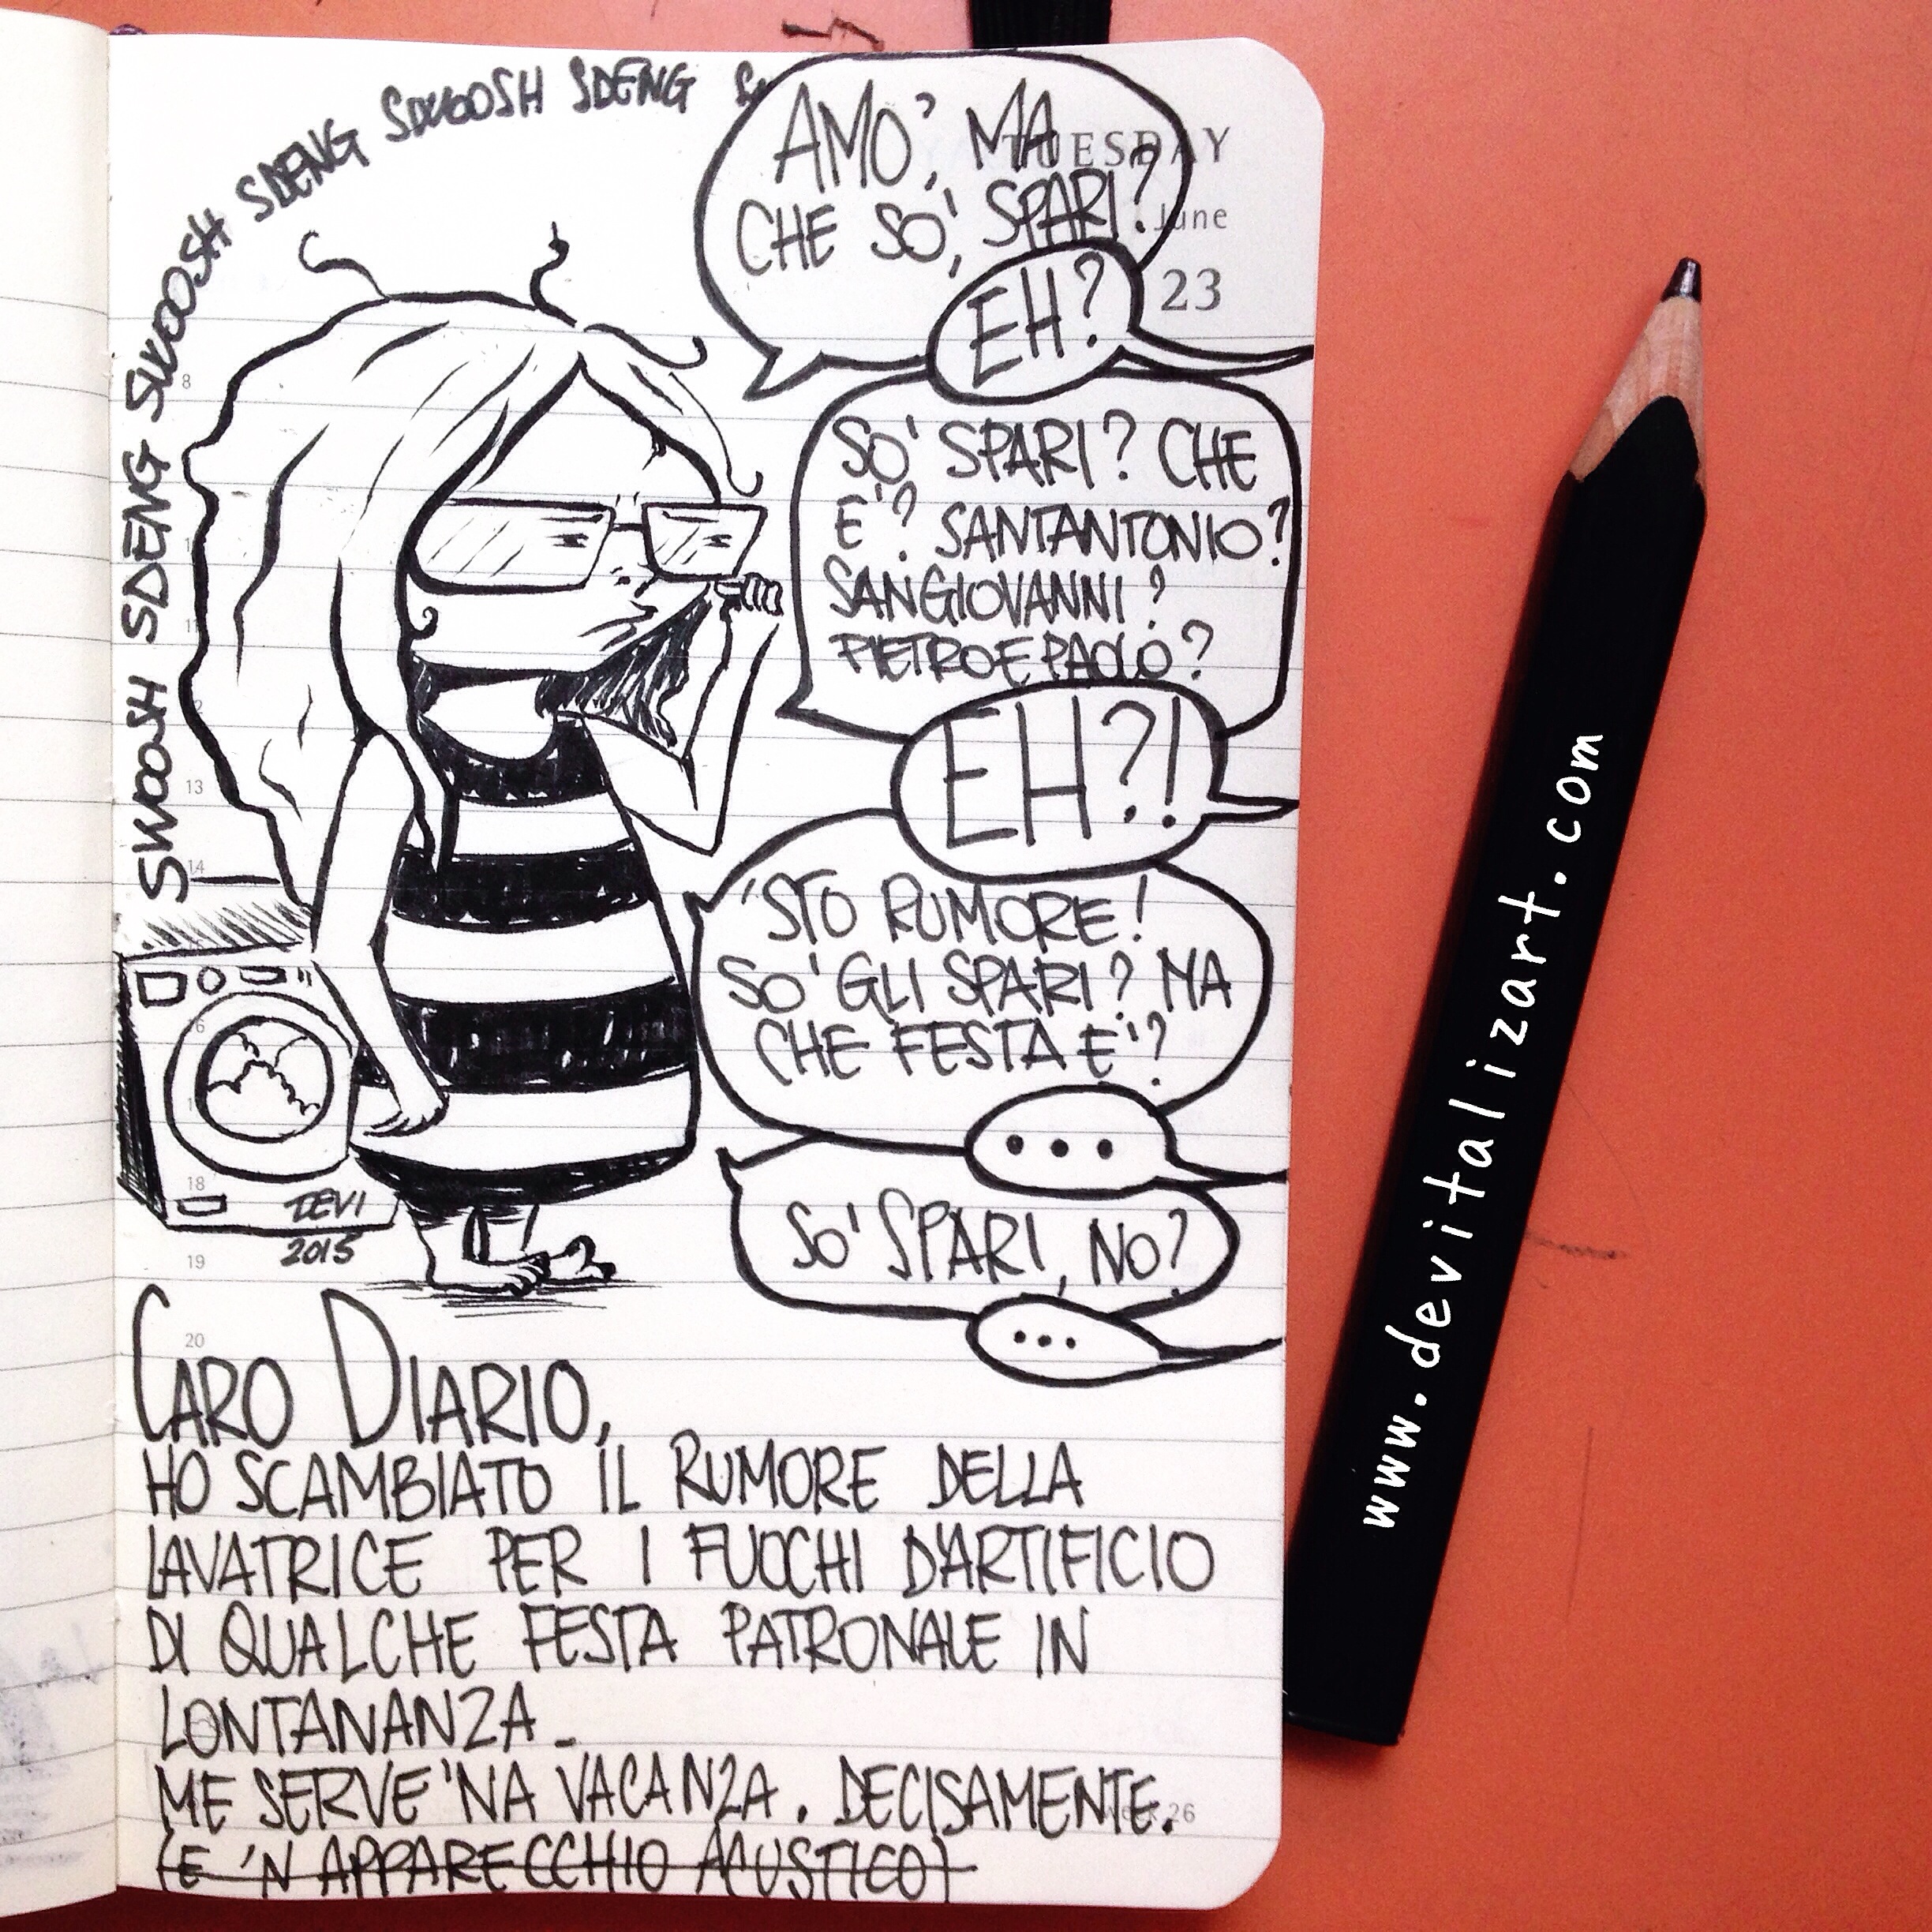 SWOOSH SDENG SWOOSH SDENG SWOOSH SDENG
TUESDAY
June
23
AMO', MA
CHE SO', SPARI?
EH?
SO' SPARI? CHE
E'? SANTANTONIO?
SANGIOVANNI?
PIETROEPAOLO?
EH?!
'STO RUMORE!
SO' GLI SPARI? MA
CHE FESTA E'?
...
SO' SPARI, NO?
...
8
11
12
13
14
18
19
20
DEVI
2015
CARO DIARIO,
HO SCAMBIATO IL RUMORE DELLA
LAVATRICE PER I FUOCHI D'ARTIFICIO
DI QUALCHE FESTA PATRONALE IN
LONTANANZA_
ME SERVE 'NA VACANZA. DECISAMENTE.
(E 'N APPARECCHIO ACUSTICO)
week 26
www.devitalizart.com